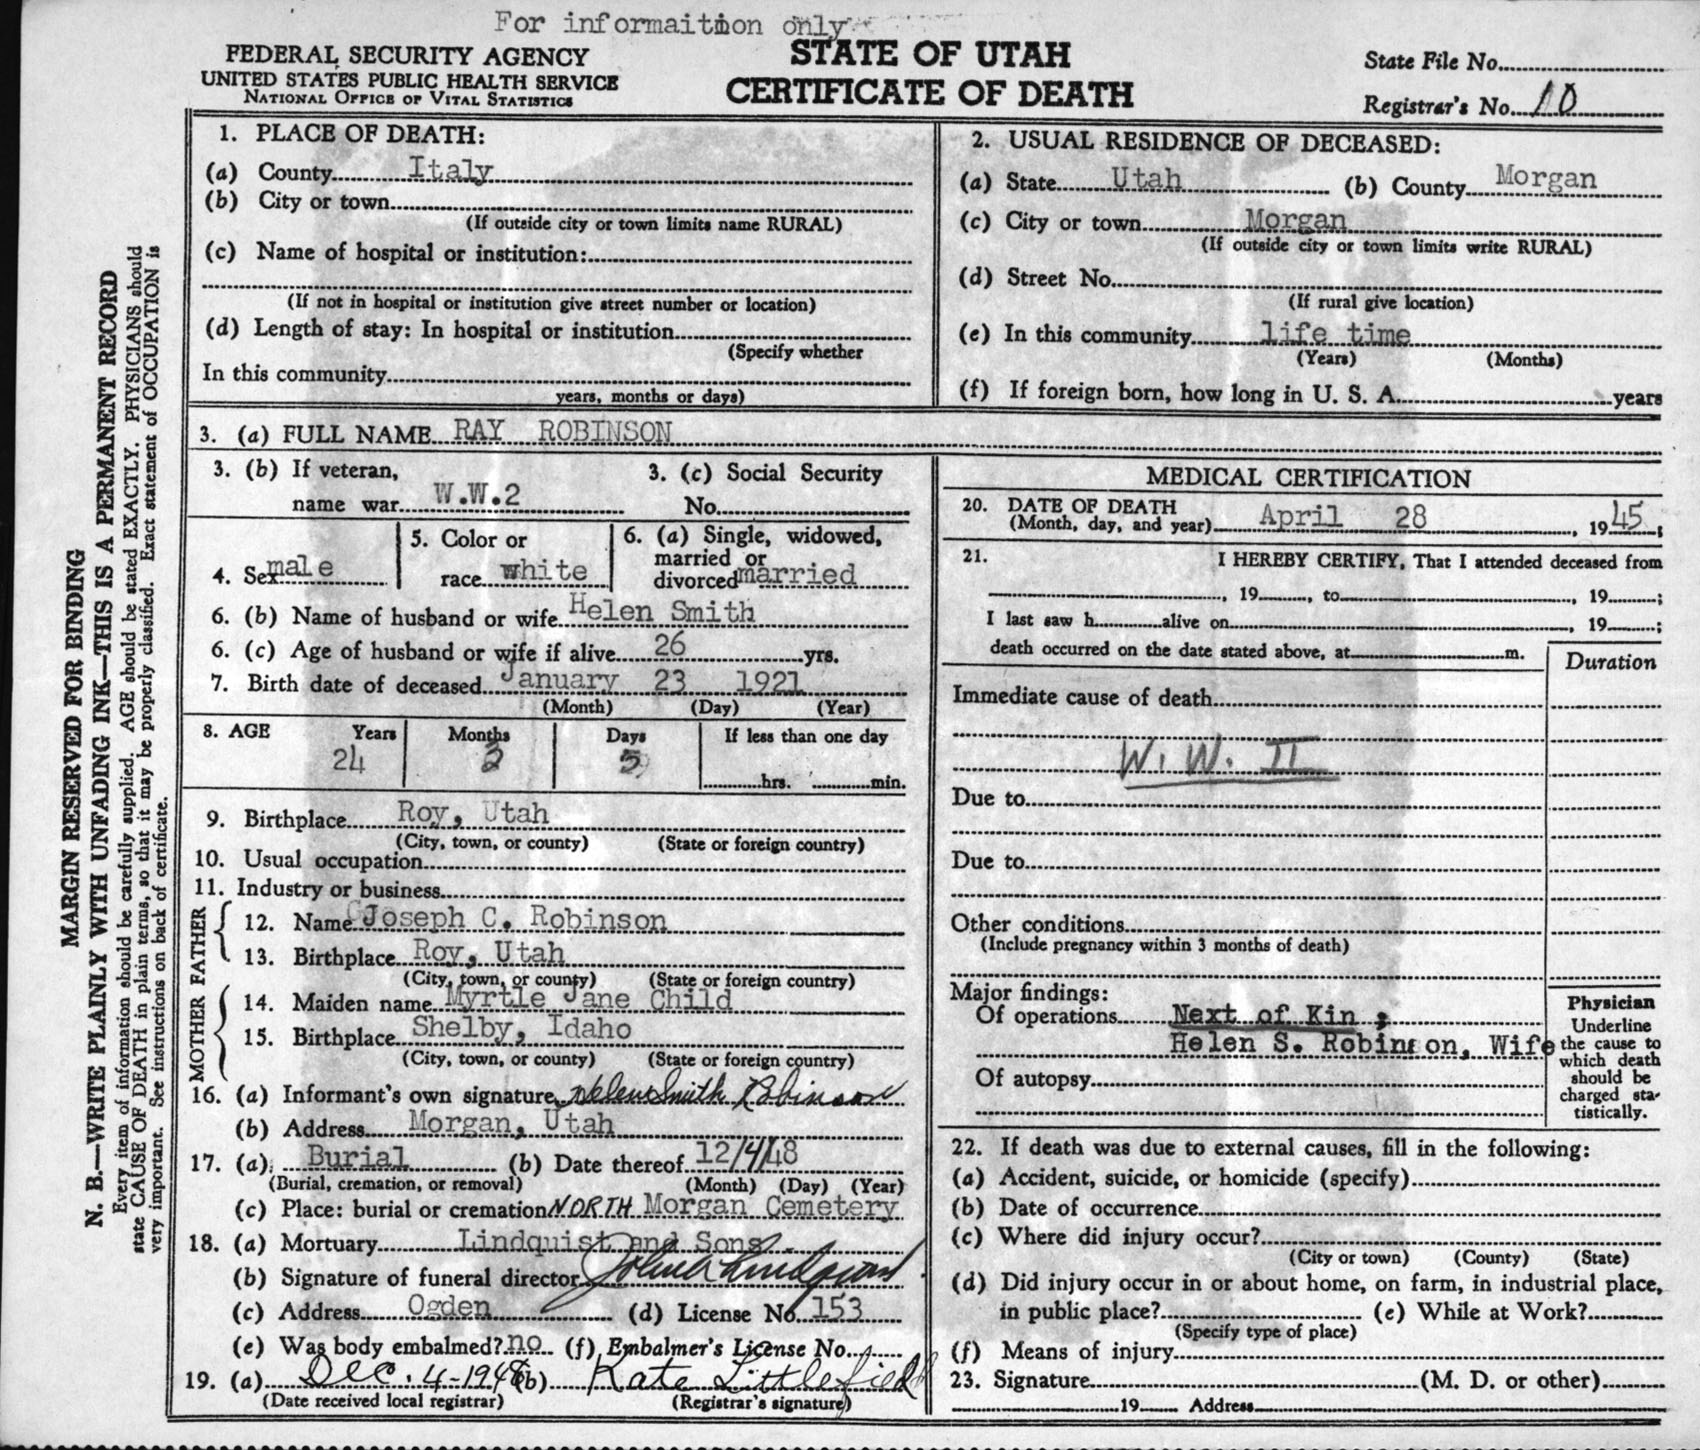 For informaition only
FEDERAL SECURITY AGENCY
UNITED STATES PUBLIC HEALTH SERVICE
NATIONAL OFFICE OF VITAL STATISTICS
STATE OF UTAH
CERTIFICATE OF DEATH
State File No.
Registrar's No. 10
MARGIN RESERVED FOR BINDING
N. B.—WRITE PLAINLY WITH UNFADING INK—THIS IS A PERMANENT RECORD
Every item of information should be carefully supplied. AGE should be stated EXACTLY. PHYSICIANS should
state CAUSE OF DEATH in plain terms, so that it may be properly classified. Exact statement of OCCUPATION is
very important. See instructions on back of certificate.
1. PLACE OF DEATH:
(a) County Italy
(b) City or town
(If outside city or town limits name RURAL)
(c) Name of hospital or institution:
(If not in hospital or institution give street number or location)
(d) Length of stay: In hospital or institution
(Specify whether
In this community
years, months or days)
2. USUAL RESIDENCE OF DECEASED:
(a) State Utah (b) County Morgan
(c) City or town Morgan
(If outside city or town limits write RURAL)
(d) Street No.
(If rural give location)
(e) In this community life time
(Years) (Months)
(f) If foreign born, how long in U. S. A. years
3. (a) FULL NAME RAY ROBINSON
3. (b) If veteran,
name war W.W.2
3. (c) Social Security
No.
4. Sex male
5. Color or
race white
6. (a) Single, widowed,
married or
divorced married
6. (b) Name of husband or wife Helen Smith
6. (c) Age of husband or wife if alive 26 yrs.
7. Birth date of deceased January 23 1921
(Month) (Day) (Year)
8. AGE Years Months Days If less than one day
24 3 5 hrs. min.
9. Birthplace Roy, Utah
(City, town, or county) (State or foreign country)
10. Usual occupation
11. Industry or business
FATHER
12. Name Joseph C. Robinson
13. Birthplace Roy, Utah
(City, town, or county) (State or foreign country)
MOTHER
14. Maiden name Myrtle Jane Child
15. Birthplace Shelby, Idaho
(City, town, or county) (State or foreign country)
16. (a) Informant's own signature Helen Smith Robinson
(b) Address Morgan, Utah
17. (a) Burial (b) Date thereof 12/4/48
(Burial, cremation, or removal) (Month) (Day) (Year)
(c) Place: burial or cremation NORTH Morgan Cemetery
18. (a) Mortuary Lindquist and Sons
(b) Signature of funeral director John A Lindquist
(c) Address Ogden (d) License No. 153
(e) Was body embalmed? no (f) Embalmer's License No.
19. (a) Dec. 4-1948 (b) Kate Littlefield
(Date received local registrar) (Registrar's signature)
MEDICAL CERTIFICATION
20. DATE OF DEATH
(Month, day, and year) April 28, 1945;
21. I HEREBY CERTIFY, That I attended deceased from
, 19 , to , 19 ;
I last saw h alive on , 19 ;
death occurred on the date stated above, at m.
Duration
Immediate cause of death
W. W. II
Due to
Due to
Other conditions
(Include pregnancy within 3 months of death)
Major findings:
Of operations Next of Kin ;
Helen S. Robinson, Wife
Of autopsy
Physician
Underline
the cause to
which death
should be
charged sta-
tistically.
22. If death was due to external causes, fill in the following:
(a) Accident, suicide, or homicide (specify)
(b) Date of occurrence
(c) Where did injury occur?
(City or town) (County) (State)
(d) Did injury occur in or about home, on farm, in industrial place,
in public place? (e) While at Work?
(Specify type of place)
(f) Means of injury
23. Signature (M. D. or other)
19 Address